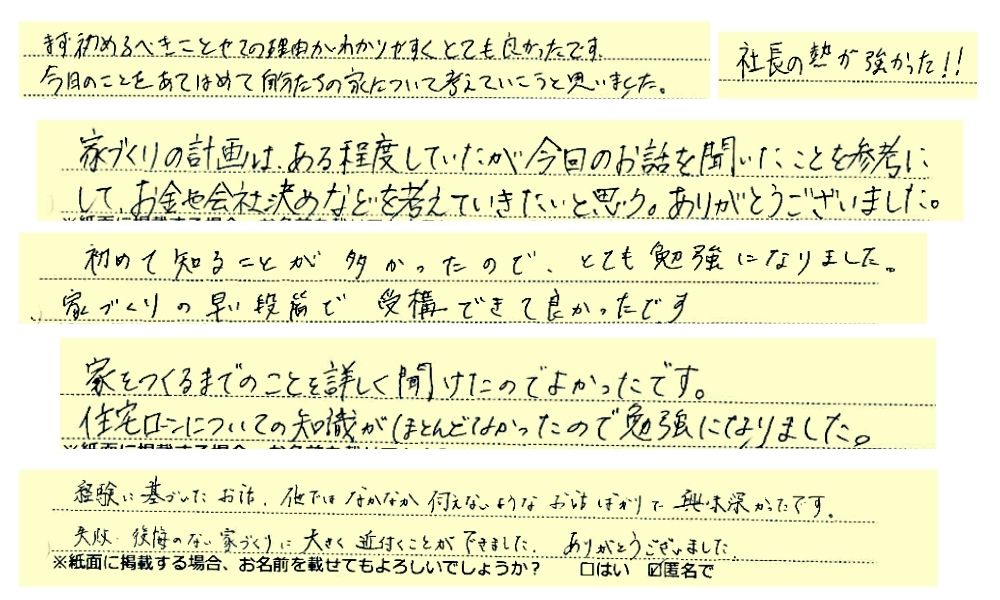 まず初めるべきこと全ての理由がわかりやすくとても良かったです
今日のことをあてはめて自分たちの家について考えていこうと思いました。
社長の熱が強かった!!
家づくりの計画は、ある程度していたが今回のお話を聞いたことを参考に
して、お金や会社決めなどを考えていきたいと思う。ありがとうございました。
初めて知ることが多かったので、とても勉強になりました。
家づくりの早い段階で受講できて良かったです
家をつくるまでのことを詳しく聞けたのでよかったです。
住宅ローンについての知識がほとんどなかったので勉強になりました。
経験に基づいたお話、他ではなかなか伺えないようなお話ばかりで興味深かったです。
失敗・後悔のない家づくりに大きく近付くことができました。ありがとうございました。
※紙面に掲載する場合、お名前を載せてもよろしいでしょうか? □はい ☑匿名で